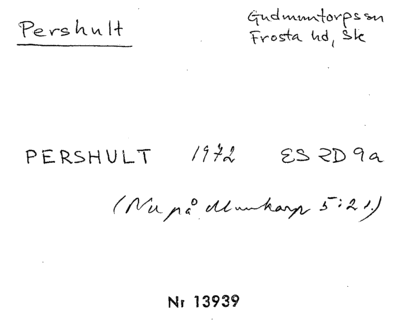 Pershult
Gudmuntorps sn
Frosta hd, Sk
PERSHULT 1972 ES 2D 9a
(Nu på Munkarp 5:21.)
Nr 13939